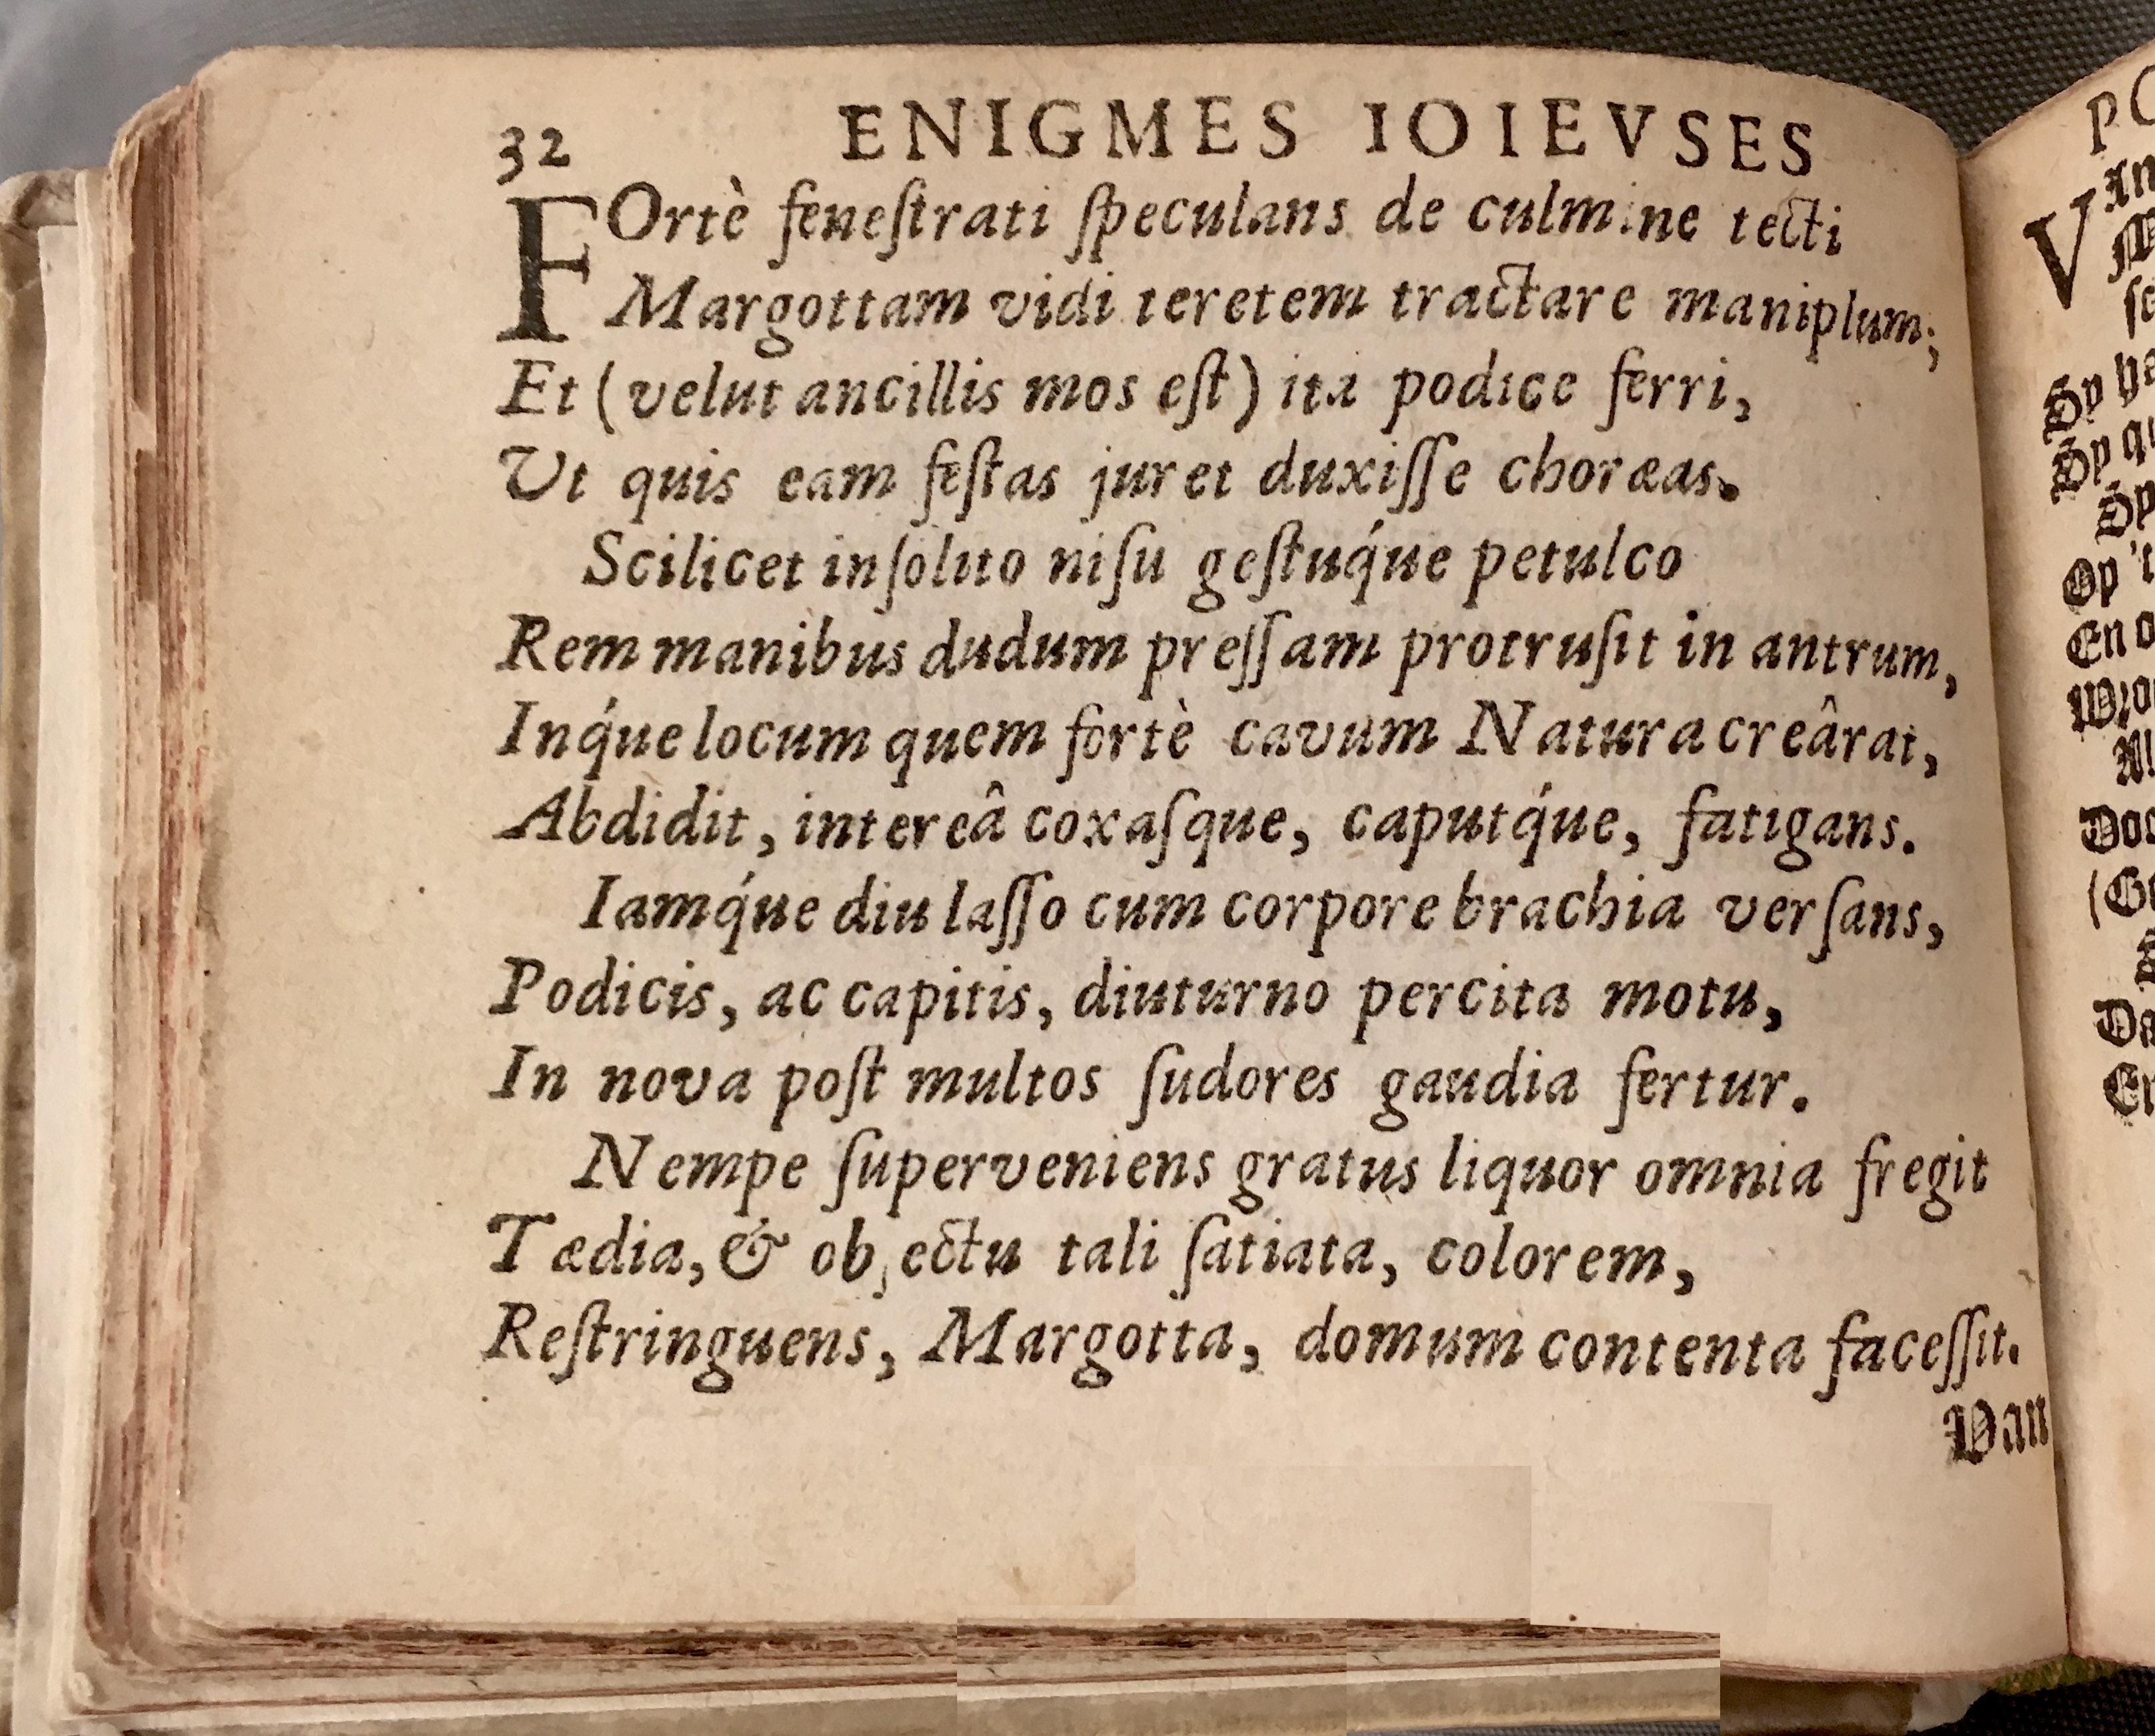 32 ENIGMES IOIEVSES
FOrtè feneſtrati ſpeculans de culmine tecti
Margottam vidi teretem tractare maniplum;
Et (velut ancillis mos eſt) ita podice ferri,
Ut quis eam feſtas juret duxiſſe choræas.
Scilicet inſolito niſu geſtuq́ue petulco
Rem manibus dudum preſſam protruſit in antrum,
Inq́ue locum quem fortè cavum Natura creârat,
Abdidit, intereâ coxaſque, caputq́ue, fatigans.
Iamq́ue diu laſſo cum corpore brachia verſans,
Podicis, ac capitis, diuturno percita motu,
In nova poſt multos ſudores gaudia fertur.
Nempe ſuperveniens gratus liquor omnia fregit
Tædia, & objectu tali ſatiata, colorem,
Reſtringuens, Margotta, domum contenta faceſſit.
Van